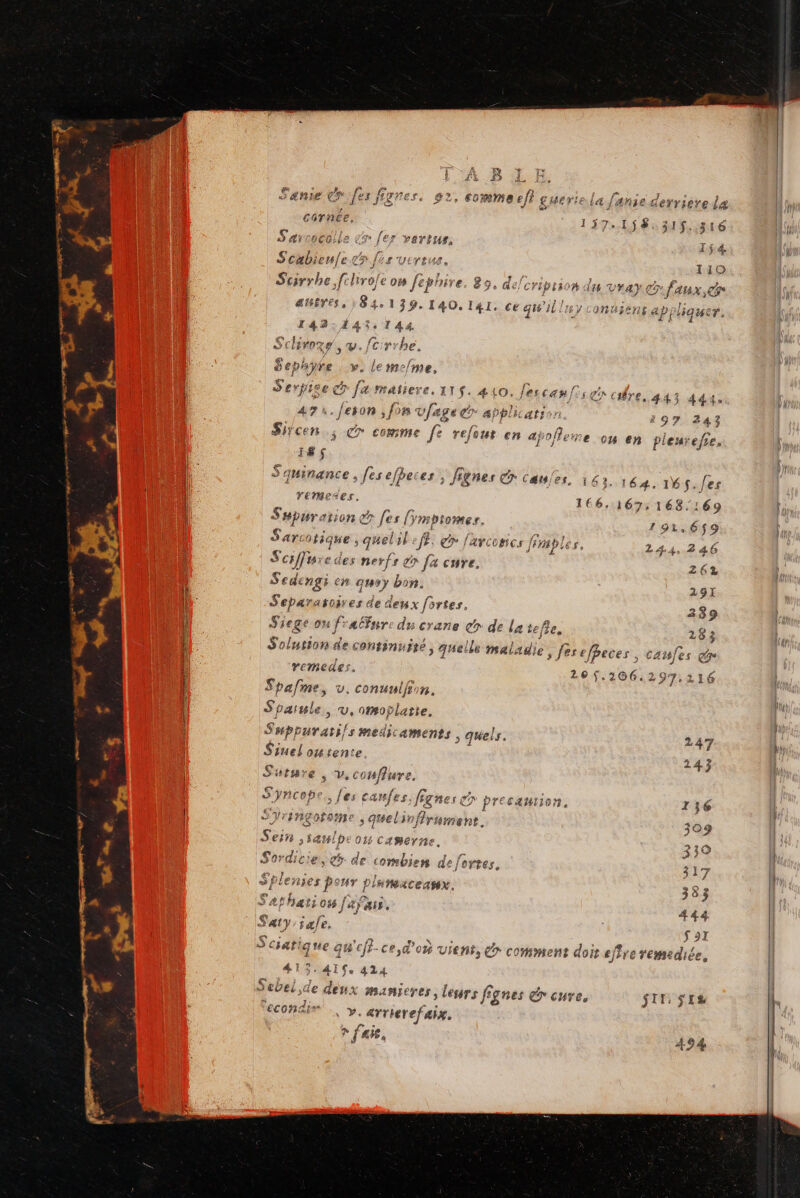 TABLE.
Sanie & ses signes. 92. comme est guerie la sanie derriere la
cornée. 157.158.315.316
Sarcocolle & ses vertus. 154
Scabieuse & ses vertus. 110
Scirrhe, sclirose ou sephire. 89. description du vray & faux, &
autres. 84.139.140.141. ce qu'il luy convient appliquer.
142.143.144
Scliroze, v. scirrhe.
Sephyre v. le mesme.
Serpige & sa matiere. 115. 410. ses causes & cure. 443 444.
seton, son usage & application. 197 243
Sircen, & comme se resout en aposteme ou en pleuresie.
185
Squinance, ses especes, signes & causes. 163. 164. 165. ses
remedes. 166. 167. 168. 169
Supuration & ses symptomes. 191.659
Sarcotique, quel il est, & sarcotics simples. 244. 246
Scissure des nerfs & sa cure. 262
Sedengi en quoy bon. 291
Separatoires de deux sortes. 289
Siege ou fracture du crane & de la teste. 283
Solution de continuité, quelle maladie, ses especes, causes &
remedes. 205.206.297.216
Spasme, v. convulsion.
Spatule, v. omoplatte.
Suppuratifs medicaments, quels. 247
Siuel ou tente. 243
Suture, v. cousture.
Syncope, ses causes, signes & precaution. 136
Syringotome, quel instrument. 309
Sein, taulpe ou caverne. 330
Sordicie, & de combien de sortes. 317
Splenies pour plumaceaux. 383
Saphati ou safati. 444
591
Sciatique qu'est-ce, d'où vient, & comment doit estre remediée.
413. 415. 424
Sebel, de deux manieres, leurs signes & cure. 511. 512
v. arrierefaix.
fait. 494